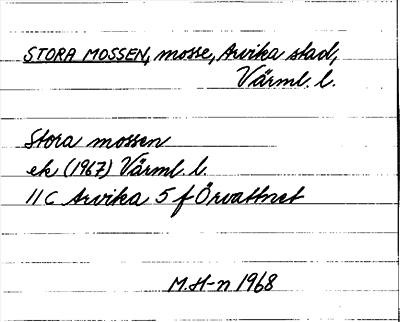 STORA MOSSEN, mosse, Arvika stad,
Värml. l.
Stora mossen
ek (1967) Värml. l.
11C Arvika 5 f Örvattnet
M. H-n 1968